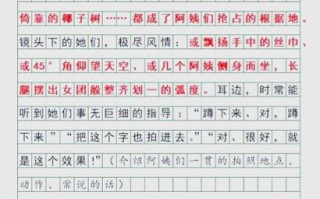 倚靠的椰子树……都成了阿姨们抢占的根据地。
镜头下的她们，极尽风情：或飘扬手中的丝巾、
或45°角仰望天空、或几个阿姨侧身而坐，长
腿摆出女团般整齐划一的弧度。耳边，时常能
听到她们事无巨细的指导：“蹲下来、对、蹲
下来”“把这个字也拍进去。”“对、很好，就
是这个效果!”（介绍阿姨们一贯的拍照地点、
动作、常说的话）